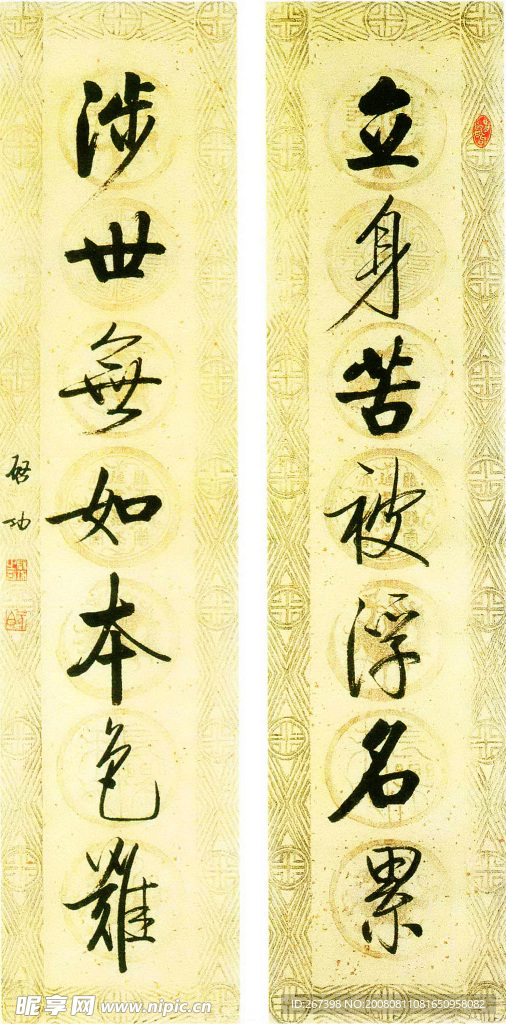 立身苦被浮名累
涉世無如本色難
啓功
昵享网 www.nipic.cn
ID:267398 NO:20080811081650958082